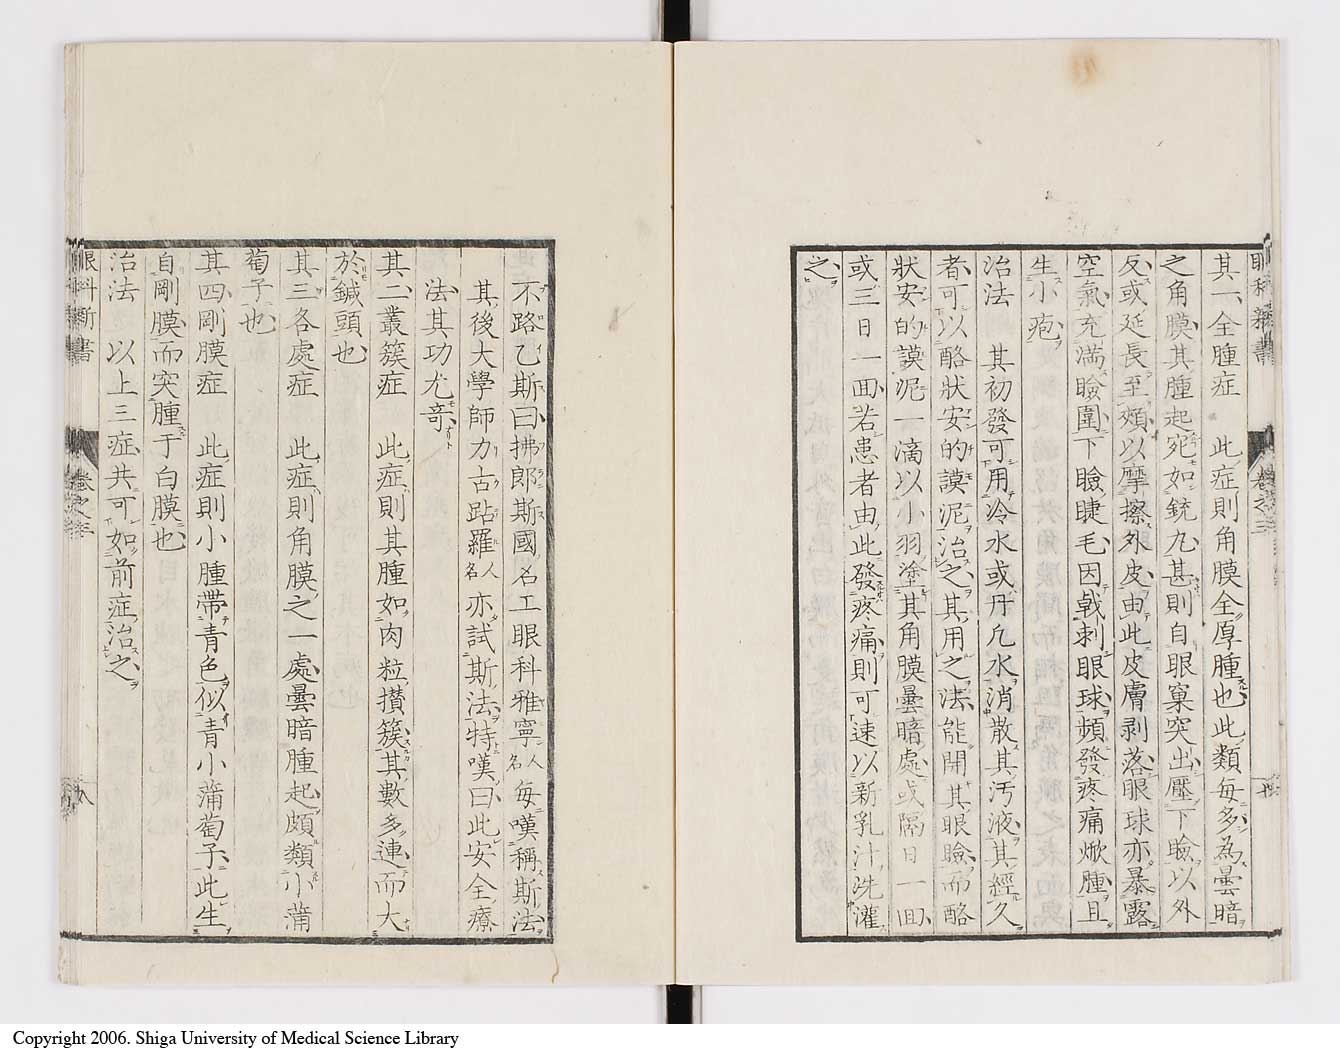 其一、全腫症　此症則角膜全厚腫也此類每多為曇暗
之角膜其腫起宛如銃丸甚則自眼窠突出壓下瞼以外
反或延長至頰以摩擦外皮由此皮膚剥落眼球亦暴露
空氣充滿瞼圍下瞼睫毛因戟刺眼球頻發疼痛焮腫且
生小疱
治法　其初發可用冷水或丹凢水消散其汚液其經久
者可以酪狀安的謨泥治之其用之法能開其眼瞼而酪
狀安的謨泥一滴以小羽塗其角膜曇暗處或隔日一囬
或三日一囬若患者由此發疼痛則可速以新乳汁洗灌
之
眼科新書　卷之三
不路乙斯曰拂郎斯國名工眼科雅寧人名每嘆稱斯法
其後大學師力古跕羅人名亦試斯法特嘆曰此安全療
法其功尤竒
其二叢簇症　此症則其腫如肉粒攅簇其數多連而大
於鍼頭也
其三各處症　此症則角膜之一處曇暗腫起頗類小蒲
萄子也
其四剛膜症　此症則小腫帶青色似青小蒲萄子此生
自剛膜而突腫于白膜也
治法　以上三症共可如前症治之
眼科新書　卷之三　八
Copyright 2006. Shiga University of Medical Science Library